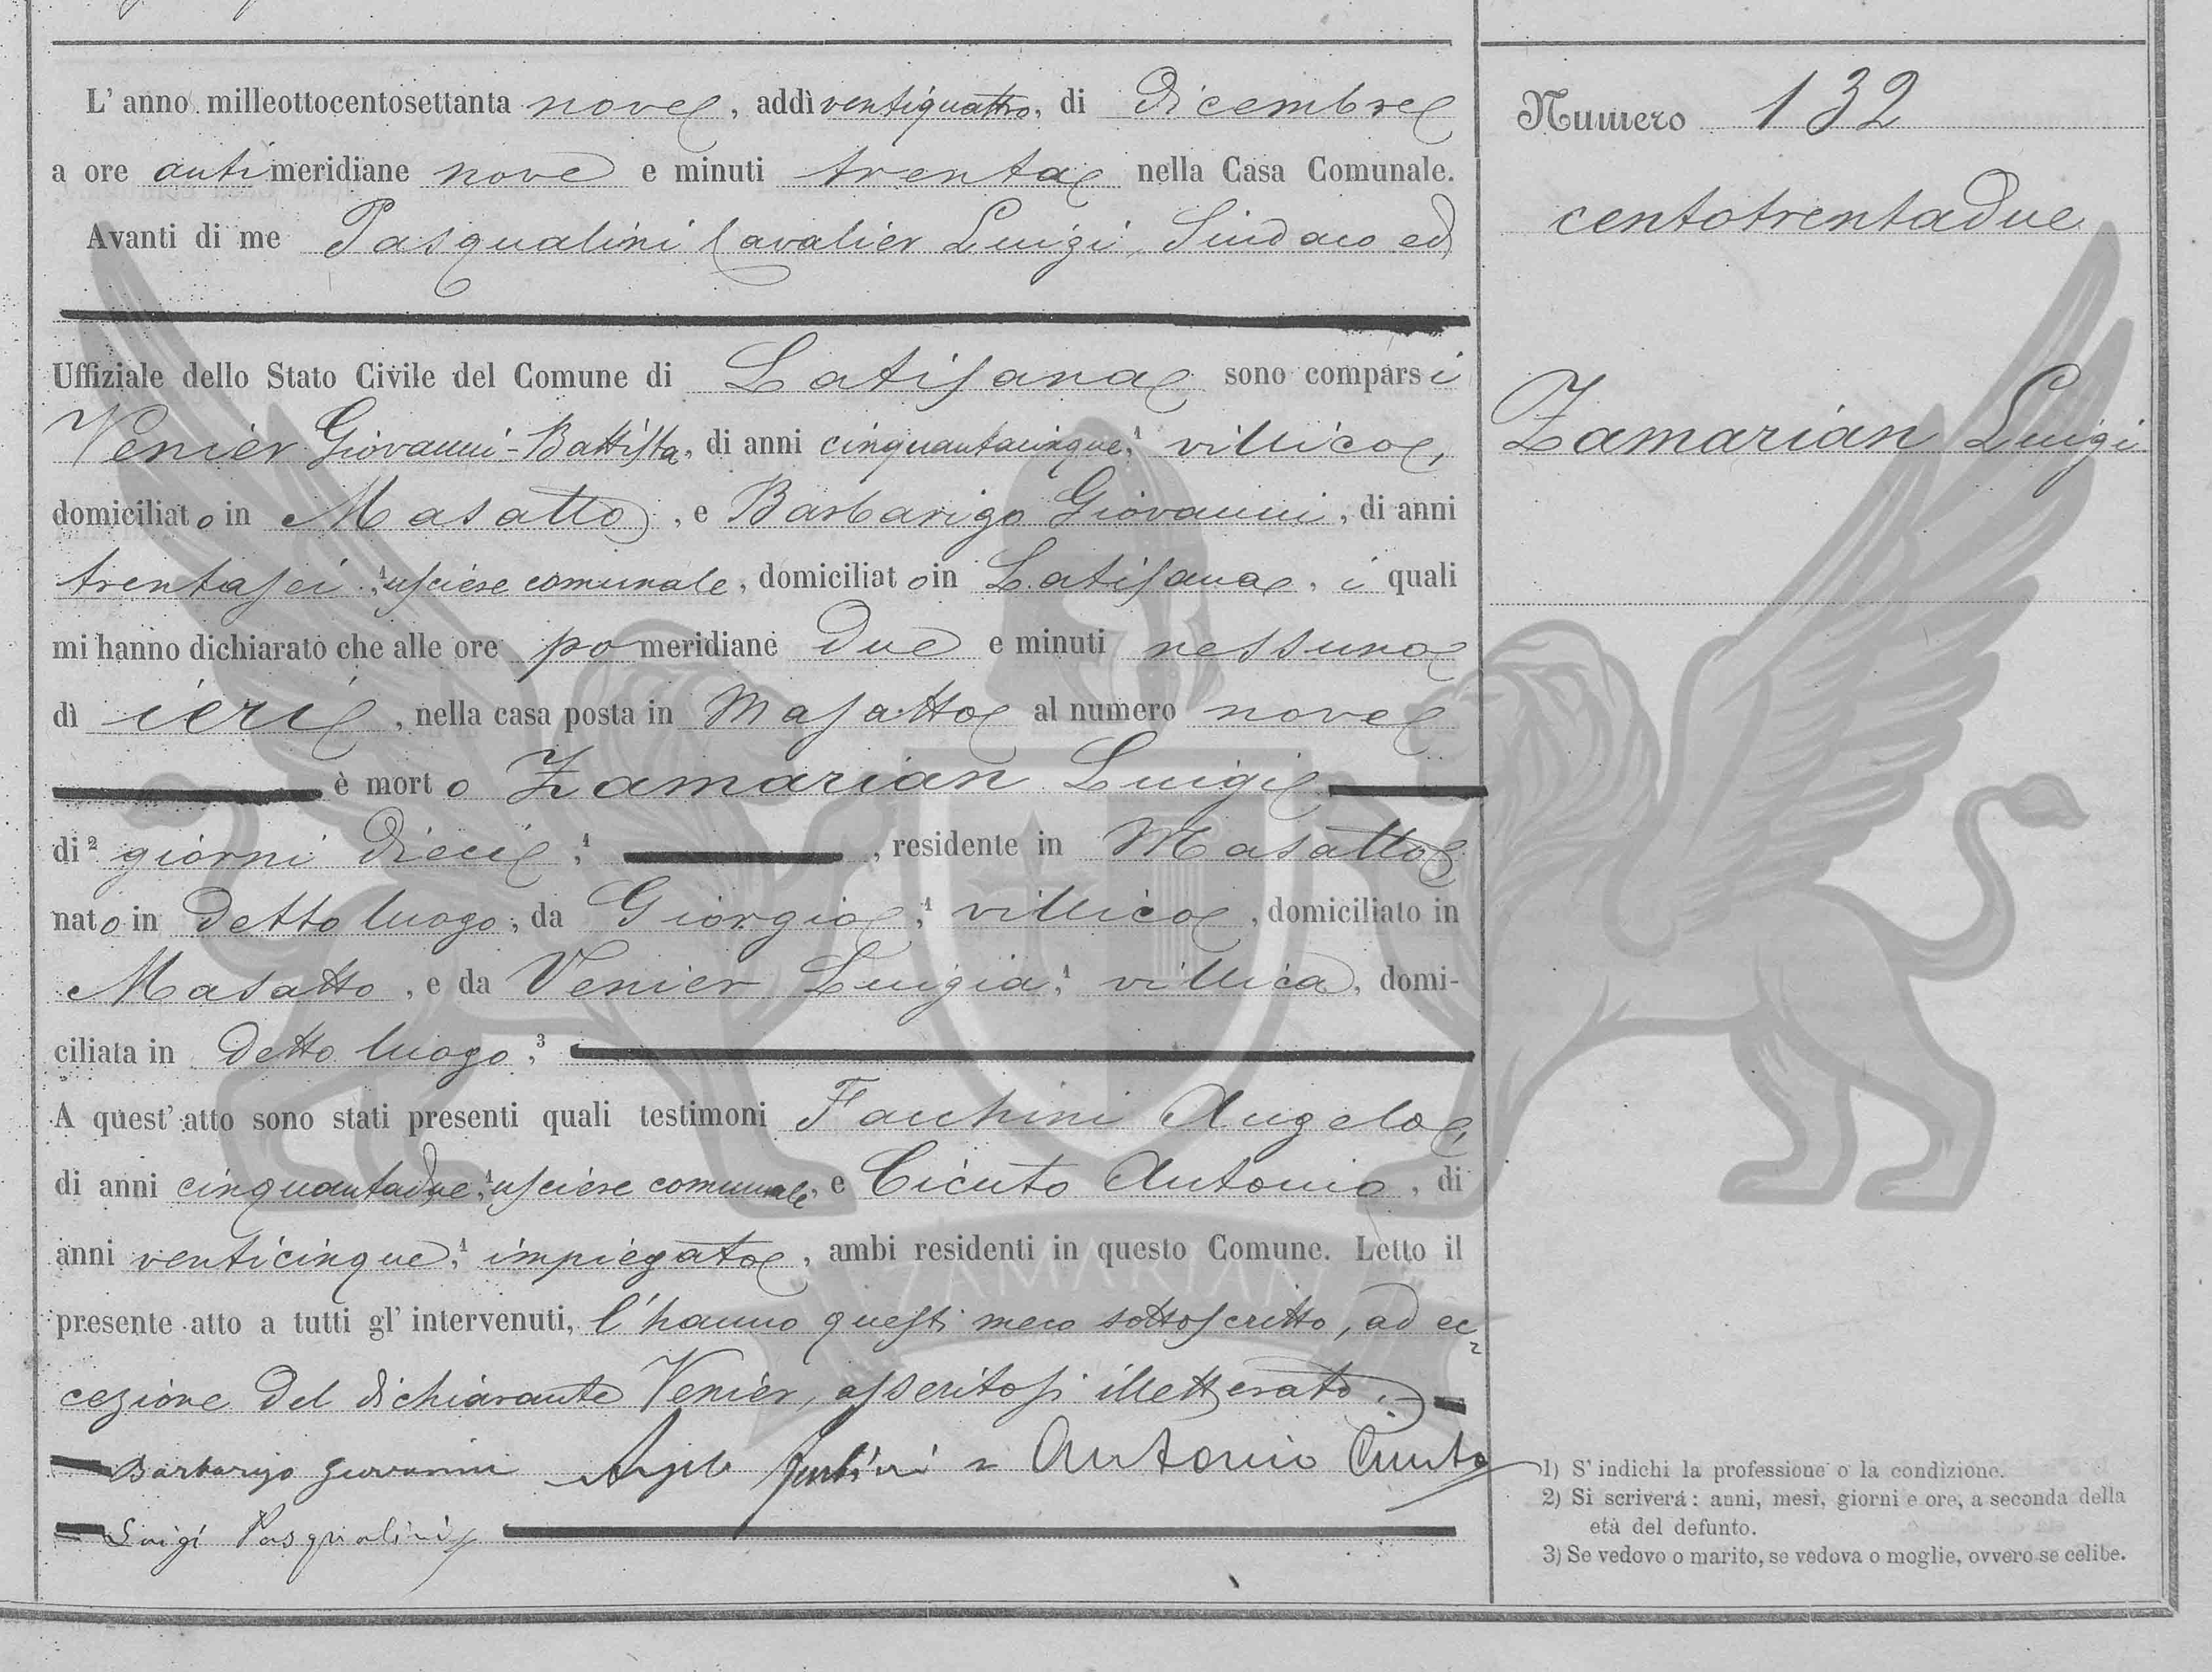 L' anno milleottocentosettanta nove, addì ventiquattro, di Dicembre
a ore antimeridiane nove e minuti trenta nella Casa Comunale.
Avanti di me Pasqualini Cavalier Luigi, Sindaco ed
Uffiziale dello Stato Civile del Comune di Latisana sono comparsi
Venier Giovanni-Battista, di anni cinquantacinque,¹ villico,
domiciliato in Masatto, e Barbarigo Giovanni, di anni
trentasei,¹ usciere comunale, domiciliato in Latisana, i quali
mi hanno dichiarato che alle ore pomeridiane due e minuti nessuno
dì ieri, nella casa posta in Masatto al numero nove
è morto Zamarian Luigi
di² giorni dieci,¹ , residente in Masatto
nato in detto luogo, da Giorgio,¹ villico, domiciliato in
Masatto, e da Venier Luigia,¹ villica, domi-
ciliata in detto luogo,³
A quest' atto sono stati presenti quali testimoni Facchini Angelo,
di anni cinquantadue,¹ usciere comunale, e Cicuto Antonio, di
anni venticinque,¹ impiegato, ambi residenti in questo Comune. Letto il
presente atto a tutti gl' intervenuti, l'hanno questi meco sottoscritto, ad ec-
cezione del dichiarante Venier, asseritosi illetterato.
Barbarigo Giovanni Antonio Cicuto
Luigi Pasqualini
Numero 132
centotrentadue
Zamarian Luigi
1) S' indichi la professione o la condizione.
2) Si scriverá: anni, mesi, giorni e ore, a seconda della
età del defunto.
3) Se vedovo o marito, se vedova o moglie, ovvero se celibe.
ZAMARIAN